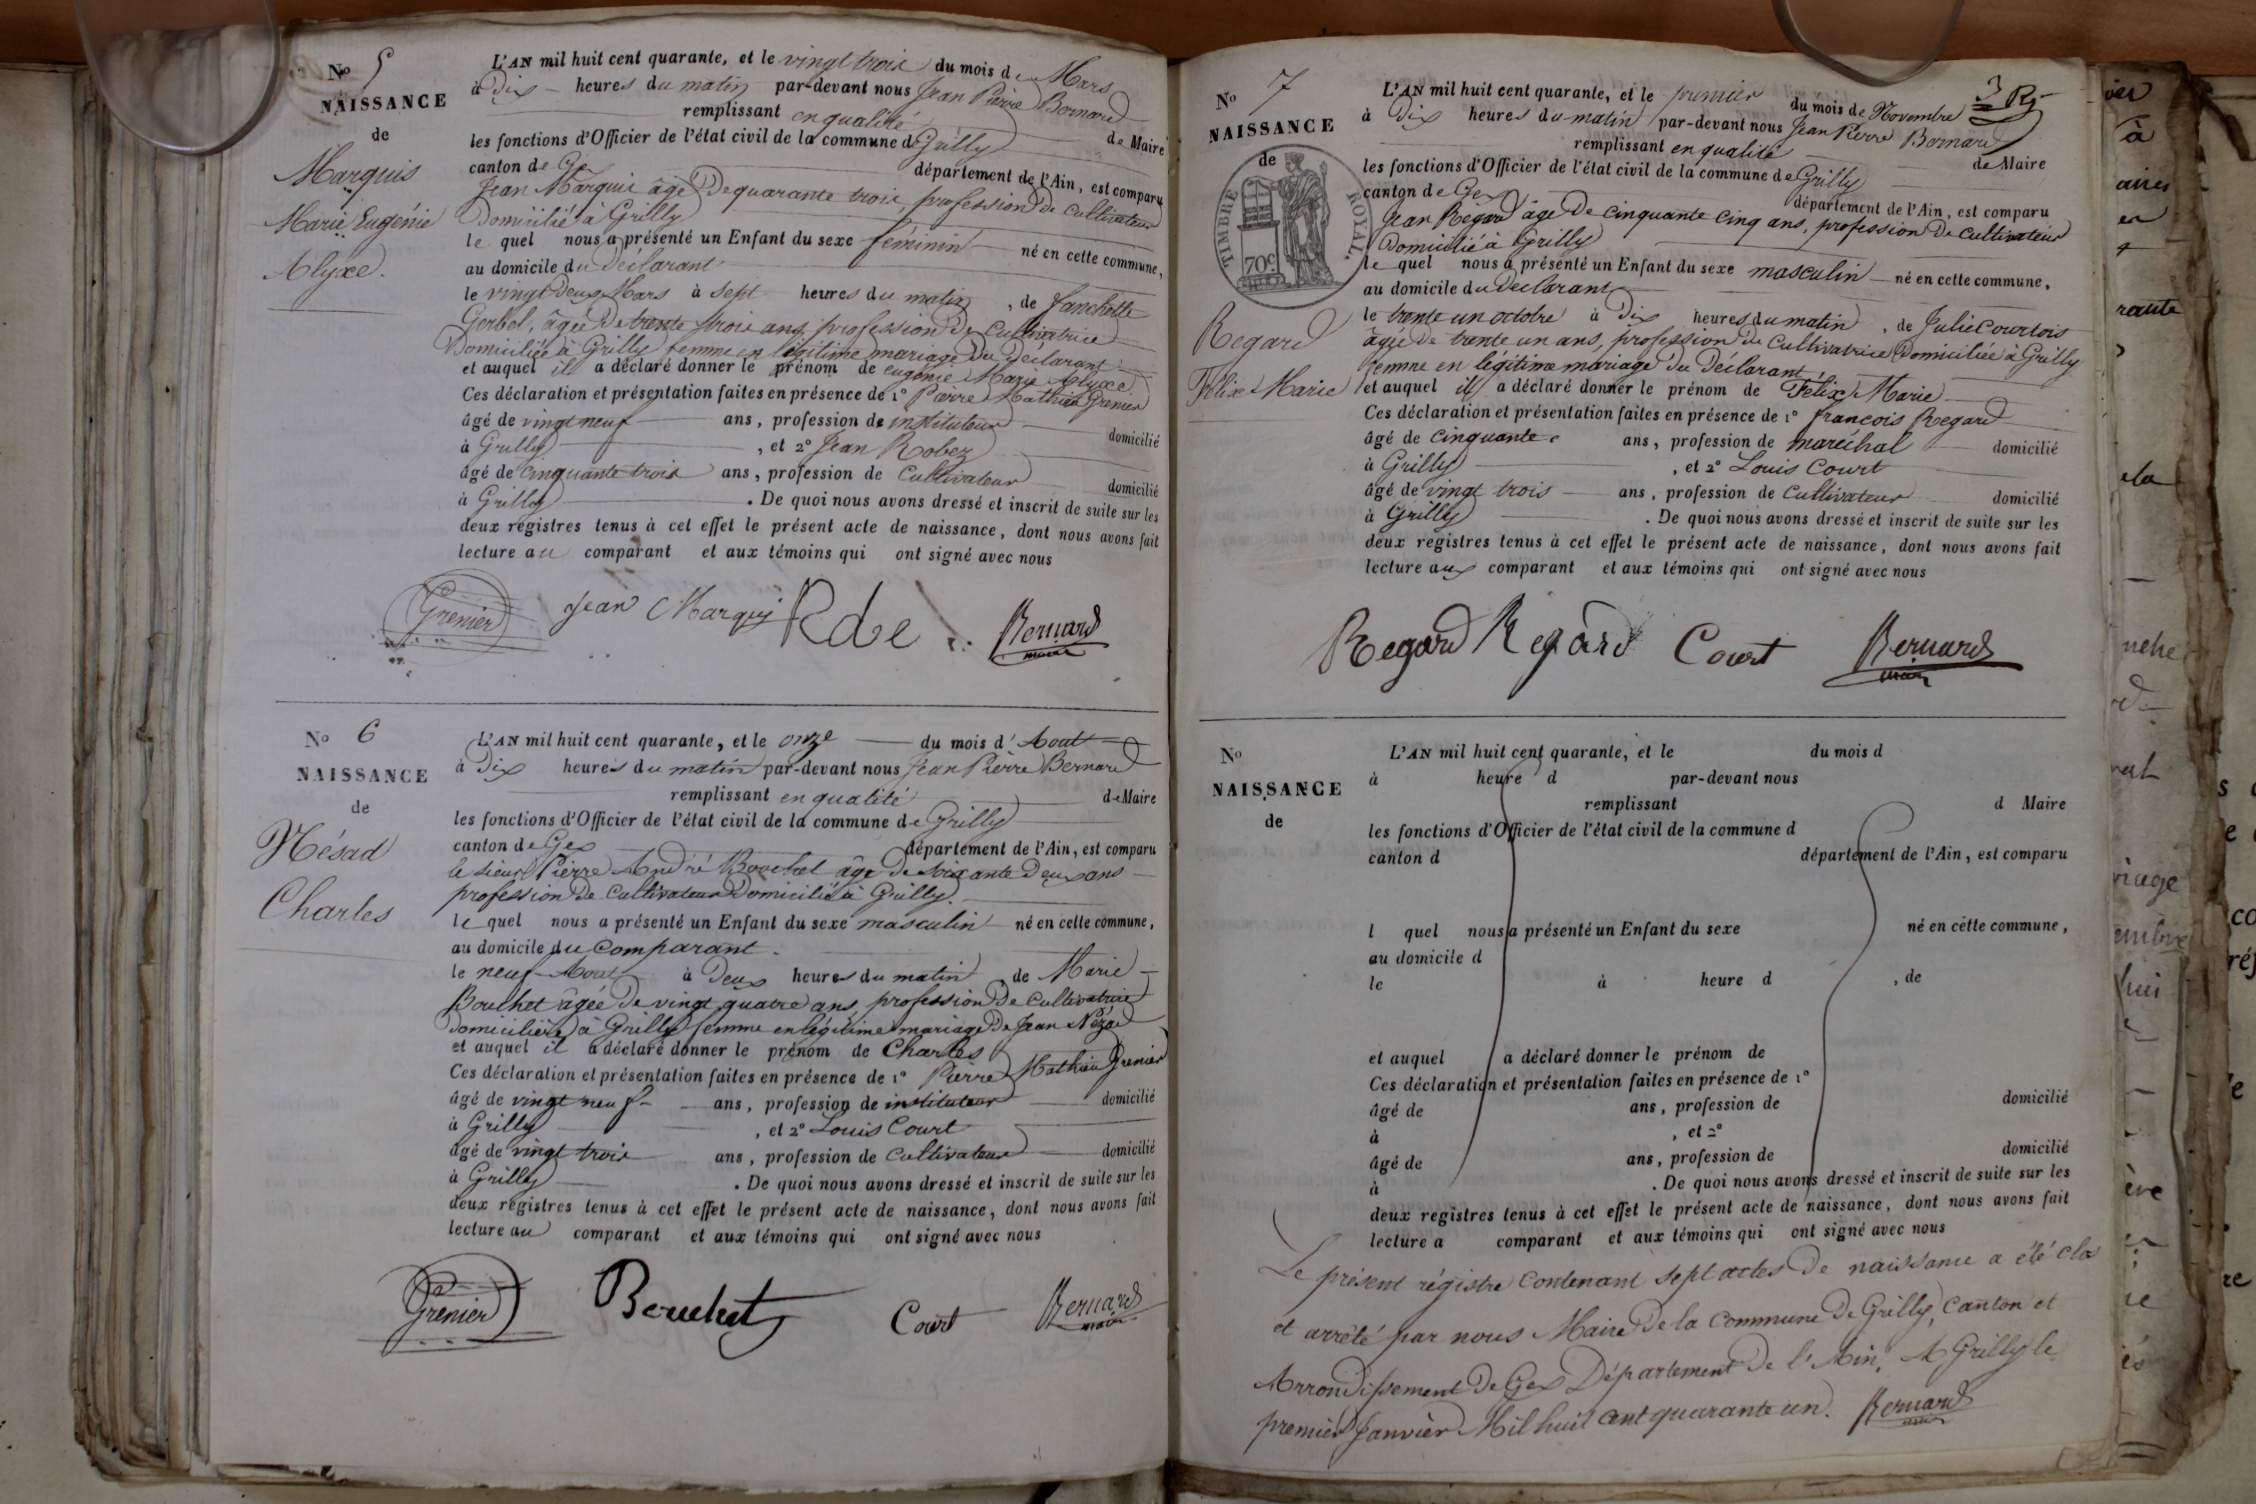 No 5
NAISSANCE
de
Marquis
Marie Eugénie
Alyxe.
L'AN mil huit cent quarante, et le vingt trois du mois de Mars
à Dix heures du matin par-devant nous Jean Pierre Bernard
remplissant en qualité de Maire
les fonctions d'Officier de l'état civil de la commune de Grilly
canton de Gex département de l'Ain, est comparu
Jean Marquis âgé De quarante trois, profession de Cultivateur
Domicilié à Grilly
le quel nous a présenté un Enfant du sexe féminin né en cette commune,
au domicile du Déclarant
le vingt Deux Mars à Sept heures du matin, de fanchette
Gerbel, âgée De trente trois ans, profession De Cultivatrice
Domiciliée à Grilly femme en légitime mariage Du Déclarant
et auquel il a déclaré donner le prénom de eugénie Marie Alyxe
Ces déclaration et présentation faites en présence de 1° Pierre Mathieu Grenier
âgé de vingt neuf ans, profession de instituteur domicilié
à Grilly, et 2° Jean Robez
âgé de cinquante trois ans, profession de Cultivateur domicilié
à Grilly. De quoi nous avons dressé et inscrit de suite sur les
deux registres tenus à cet effet le présent acte de naissance, dont nous avons fait
lecture au comparant et aux témoins qui ont signé avec nous
Grenier Jean Marquis Bernard
maire
No 6
NAISSANCE
de
Nésad
Charles
L'AN mil huit cent quarante, et le onze du mois d'Aout
à Dix heures du matin par-devant nous Jean Pierre Bernard
remplissant en qualité de Maire
les fonctions d'Officier de l'état civil de la commune de Grilly
canton de Gex département de l'Ain, est comparu
le sieur Pierre André Bouchet âgé de soixante Deux ans
profession De Cultivateur Domicilié à Grilly.
le quel nous a présenté un Enfant du sexe masculin né en cette commune,
au domicile du Comparant.
le neuf Aout à Deux heures du matin, de Marie
Bouchet âgée De vingt quatre ans, profession De Cultivatrice
Domiciliée à Grilly femme en légitime mariage De Jean Nézad
et auquel il a déclaré donner le prénom de Charles
Ces déclaration et présentation faites en présence de 1° Pierre Mathieu Grenier
âgé de vingt neuf ans, profession de instituteur domicilié
à Grilly, et 2° Louis Court
âgé de vingt trois ans, profession de Cultivateur domicilié
à Grilly. De quoi nous avons dressé et inscrit de suite sur les
deux registres tenus à cet effet le présent acte de naissance, dont nous avons fait
lecture au comparant et aux témoins qui ont signé avec nous
Grenier Bouchet Court Bernard
maire
No 7
NAISSANCE
de
TIMBRE ROYAL.
70c
Regard
Félix Marie
L'AN mil huit cent quarante, et le premier du mois de Novembre
à Dix heures du matin par-devant nous Jean Pierre Bernard
remplissant en qualité de Maire
les fonctions d'Officier de l'état civil de la commune de Grilly
canton de Gex département de l'Ain, est comparu
Jean Regard âgé De cinquante cinq ans, profession De Cultivateur
Domicilié à Grilly
le quel nous a présenté un Enfant du sexe masculin né en cette commune,
au domicile du Déclarant
le trente un octobre à Dix heures du matin, de Julie Courtois
âgée De trente un ans, profession De Cultivatrice Domiciliée à Grilly
femme en légitime mariage du Déclarant
et auquel il a déclaré donner le prénom de Félix Marie
Ces déclaration et présentation faites en présence de 1° francois Regard
âgé de cinquante ans, profession de maréchal domicilié
à Grilly, et 2° Louis Court
âgé de vingt trois ans, profession de Cultivateur domicilié
à Grilly. De quoi nous avons dressé et inscrit de suite sur les
deux registres tenus à cet effet le présent acte de naissance, dont nous avons fait
lecture aux comparant et aux témoins qui ont signé avec nous
Regard Regard Court Bernard
maire
No
NAISSANCE
de
L'AN mil huit cent quarante, et le du mois d
à heure d par-devant nous
remplissant d Maire
les fonctions d'Officier de l'état civil de la commune d
canton d département de l'Ain, est comparu
l quel nous a présenté un Enfant du sexe né en cette commune,
au domicile d
le à heure d , de
et auquel a déclaré donner le prénom de
Ces déclaration et présentation faites en présence de 1°
âgé de ans, profession de domicilié
à , et 2°
âgé de ans, profession de domicilié
à . De quoi nous avons dressé et inscrit de suite sur les
deux registres tenus à cet effet le présent acte de naissance, dont nous avons fait
lecture a comparant et aux témoins qui ont signé avec nous
Le présent régistre Contenant Sept actes De naissance a été clos
et arrêté par nous Maire De la Commune De Grilly, Canton et
Arrondissement De Gex Département De l'Ain, A Grilly le
premier Janvier Mil huit cent quarante un. Bernard
maire